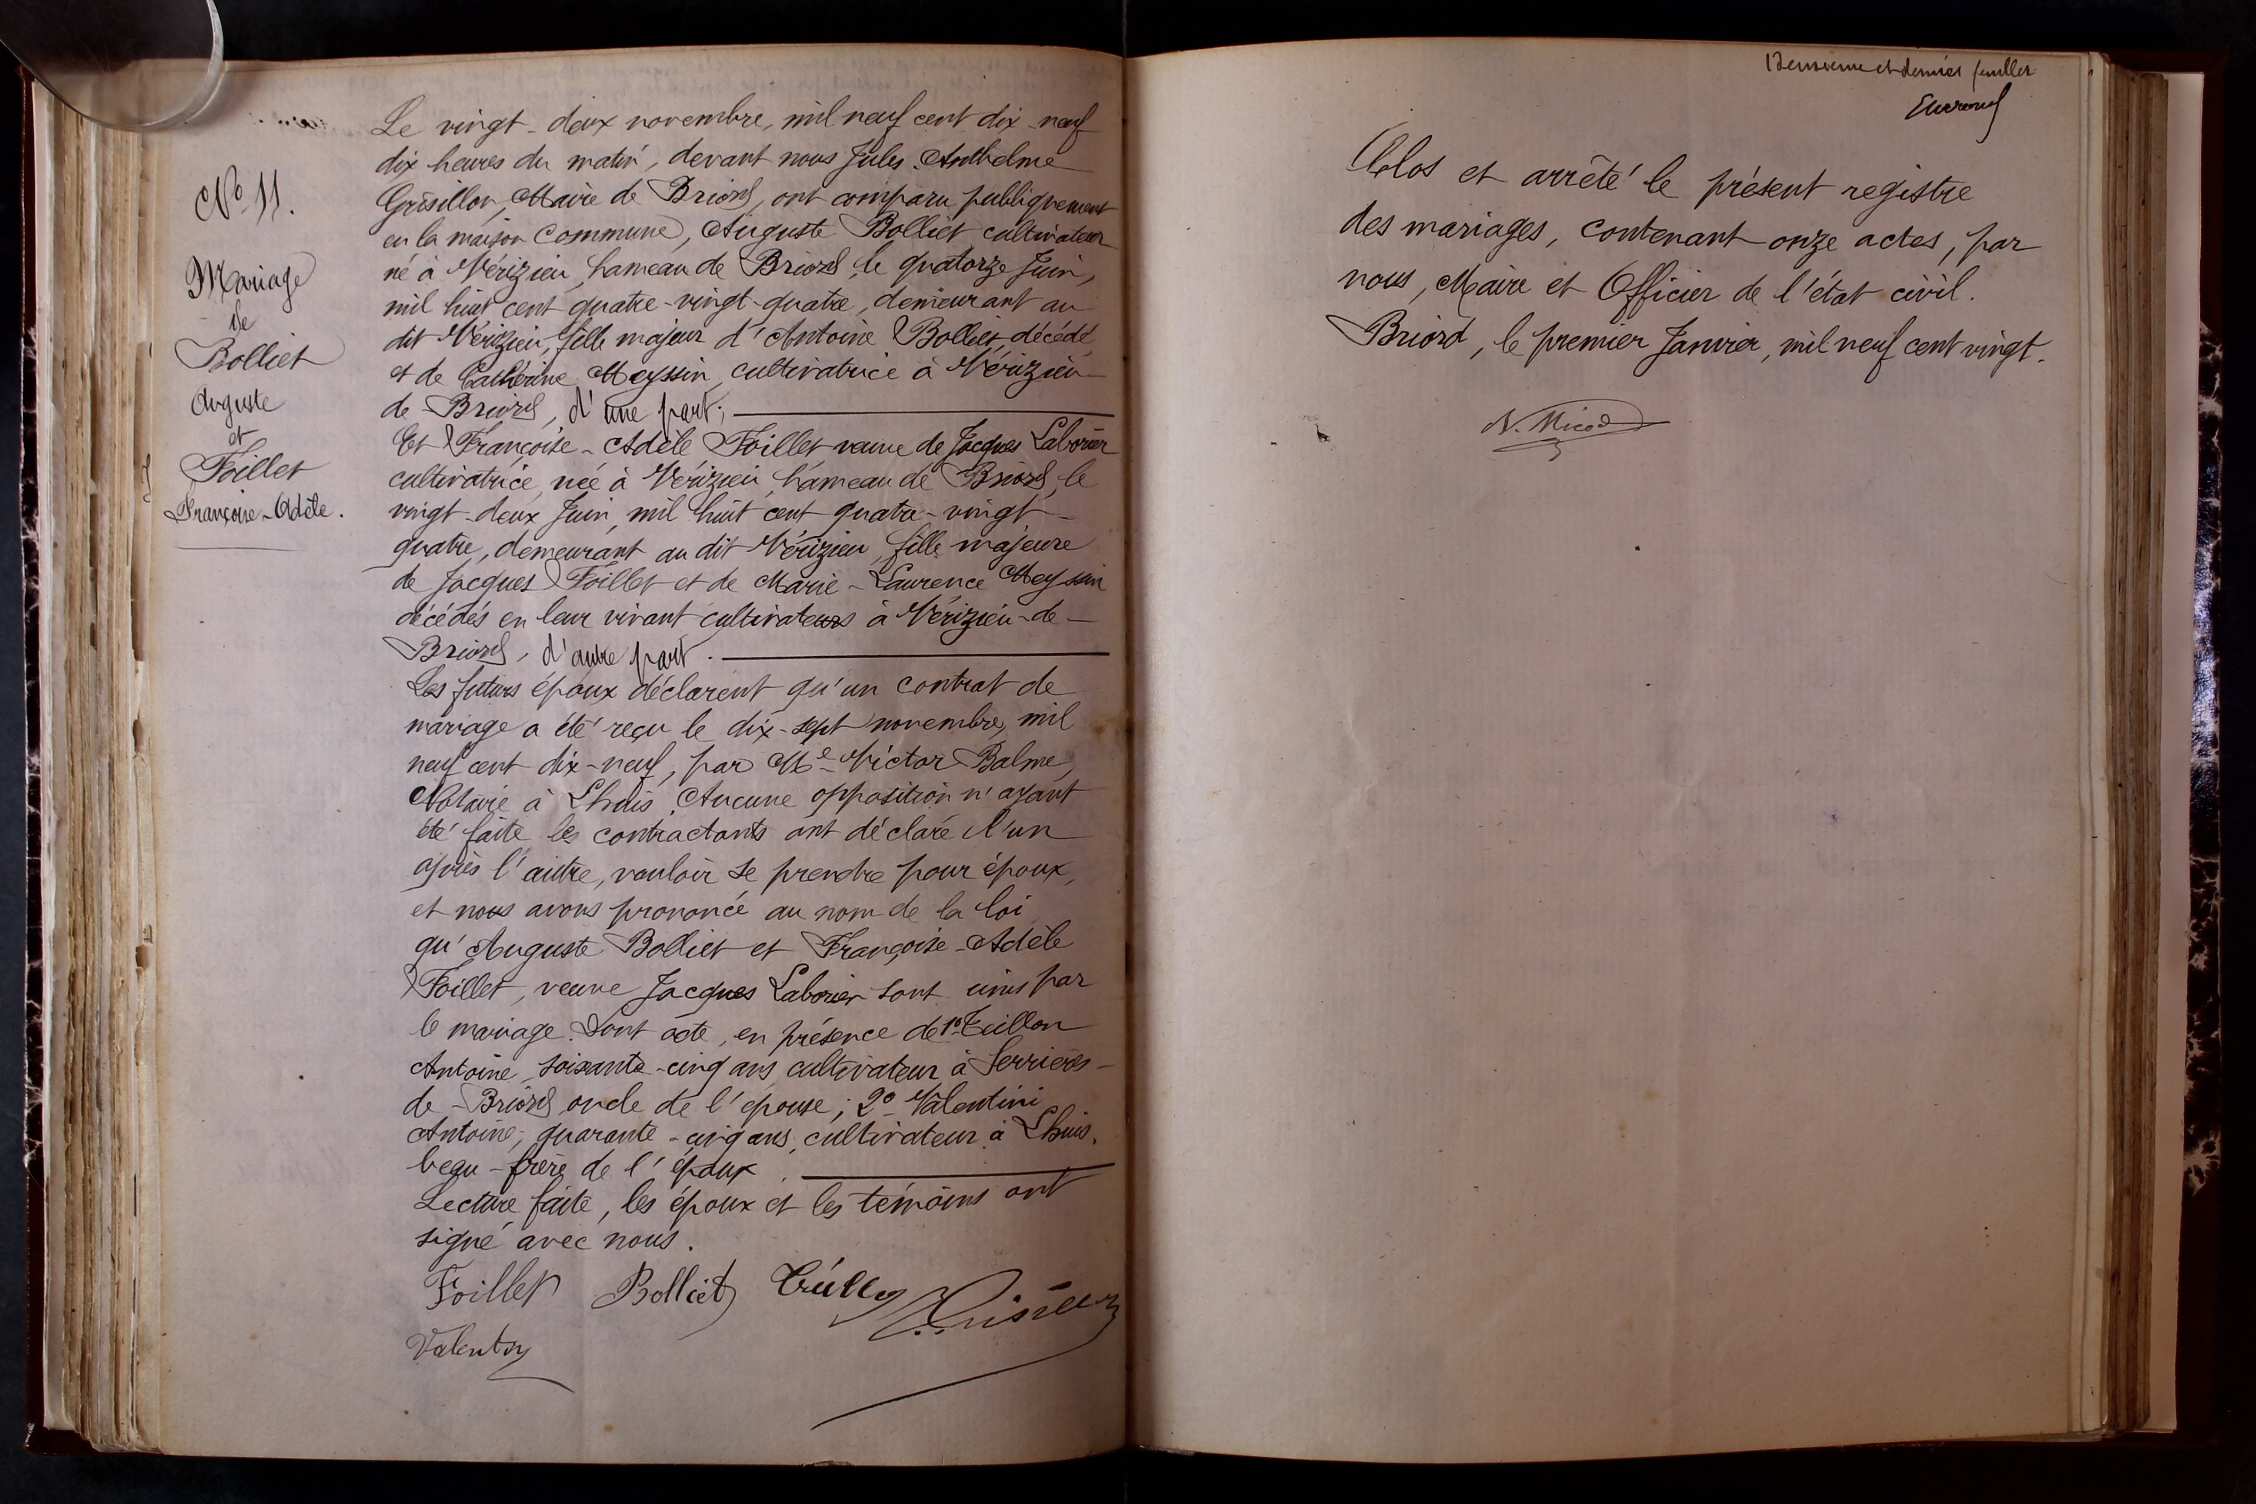 No 11.
Mariage
de
Bolliet
Auguste
et
Foillet
Françoise-Adèle.
Le vingt-deux novembre, mil neuf cent dix-neuf
dix heures du matin, devant nous Jules Anthelme
Grisillon, Maire de Briord, ont comparu publiquement
en la maison Commune, Auguste Bolliet cultivateur
né à Vérizieu, hameau de Briord, le quatorze Juin,
mil huit cent quatre-vingt-quatre, demeurant au
dit Vérizieu, fille majeur d'Antoine Bolliet, décédé
et de Cathérine Meyssin, cultivatrice à Vérizieu
de Briord, d'une part;
Et Françoise-Adèle Foillet veuve de Jacques Laborier
cultivatrice, née à Vérizieu, hameau de Briord, le
vingt-deux Juin, mil huit cent quatre-vingt-
quatre, demeurant au dit Vérizieu, fille majeure
de Jacques Foillet et de Marie-Laurence Meyssin
décédés en leur vivant cultivateurs à Vérizieu-de-
Briord, d'autre part.
Les futurs époux déclarent qu'un contrat de
mariage a été reçu le dix-sept novembre, mil
neuf cent dix-neuf, par Me Victor Balme,
Notaire à Lhuis. Aucune opposition n'ayant
été faite les contractants ont déclaré l'un
après l'autre, vouloir se prendre pour époux,
et nous avons prononcé au nom de la loi
qu'Auguste Bolliet et Françoise-Adèle
Foillet, veuve Jacques Laborier sont unis par
le mariage. Dont acte, en présence de 1º Trillon
Antoine, soixante-cinq ans, cultivateur à Serrières-
de-Briord oncle de l'epouse; 2º Valentini
Antoine, quarante-cinq ans, cultivateur à Lhuis,
beau-frère de l'époux.
Lecture faite, les époux et les témoins ont
signé avec nous.
Foillet Bolliet Grisillon
Valentin
et dernier feuillet
Clos et arrêté le présent registre
des mariages, contenant onze actes, par
nous, Maire et Officier de l'état civil.
Briord, le premier Janvier, mil neuf cent vingt.
N. Micod